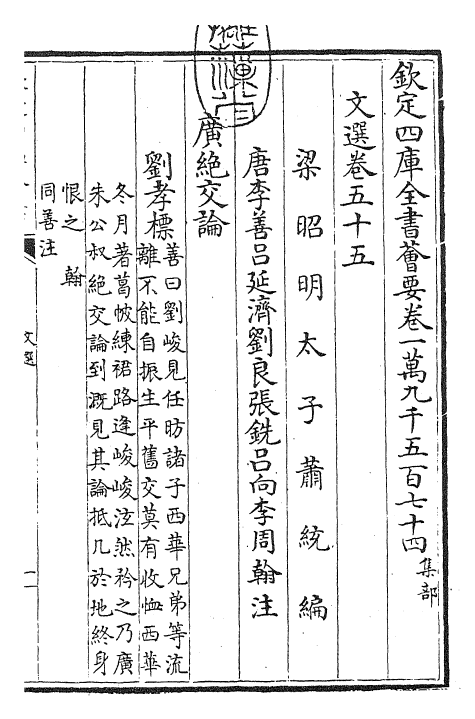 欽定四庫全書薈要卷一萬九千五百七十四 集部
文選卷五十五
梁昭明太子蕭統編
唐李善呂延濟劉良張銑呂向李周翰注
廣絶交論
劉孝標
善曰劉峻見任昉諸子西華兄弟等流
離不能自振生平舊交莫有收恤西華
冬月著葛帔練裙路逢峻峻泫然矜之乃廣
朱公叔絶交論到溉見其論抵几於地終身
恨之 翰
同善注
文選
一